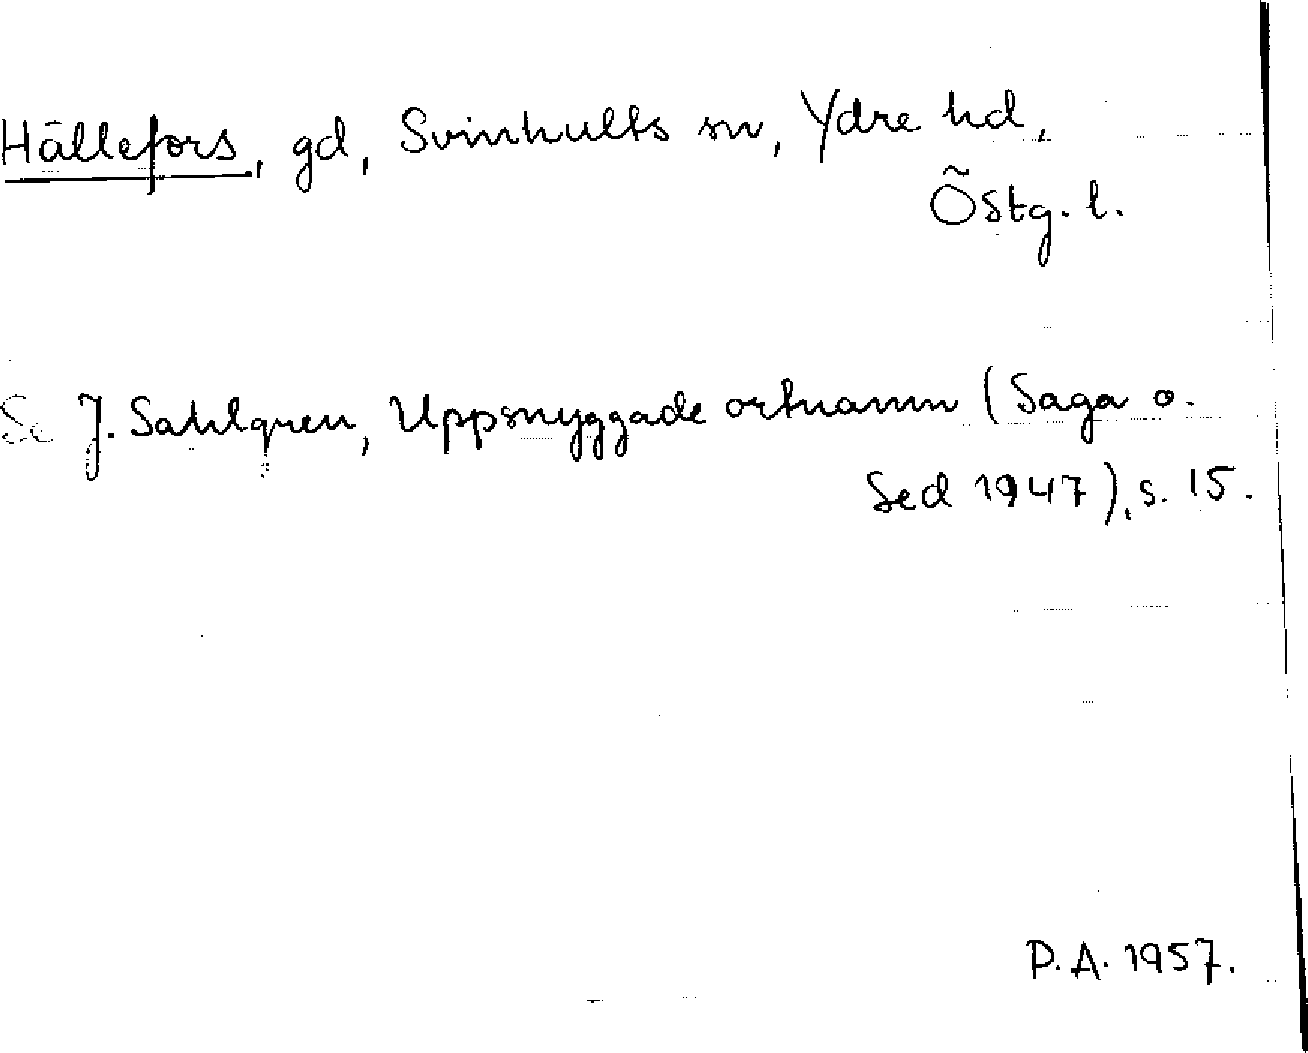 Hällefors, gd, Svinhults sn, Ydre hd,
Östg. l.
Se J. Sahlgren, Uppsnyggade ortnamn (Saga o.
Sed 1947), s. 15.
P.A. 1957.